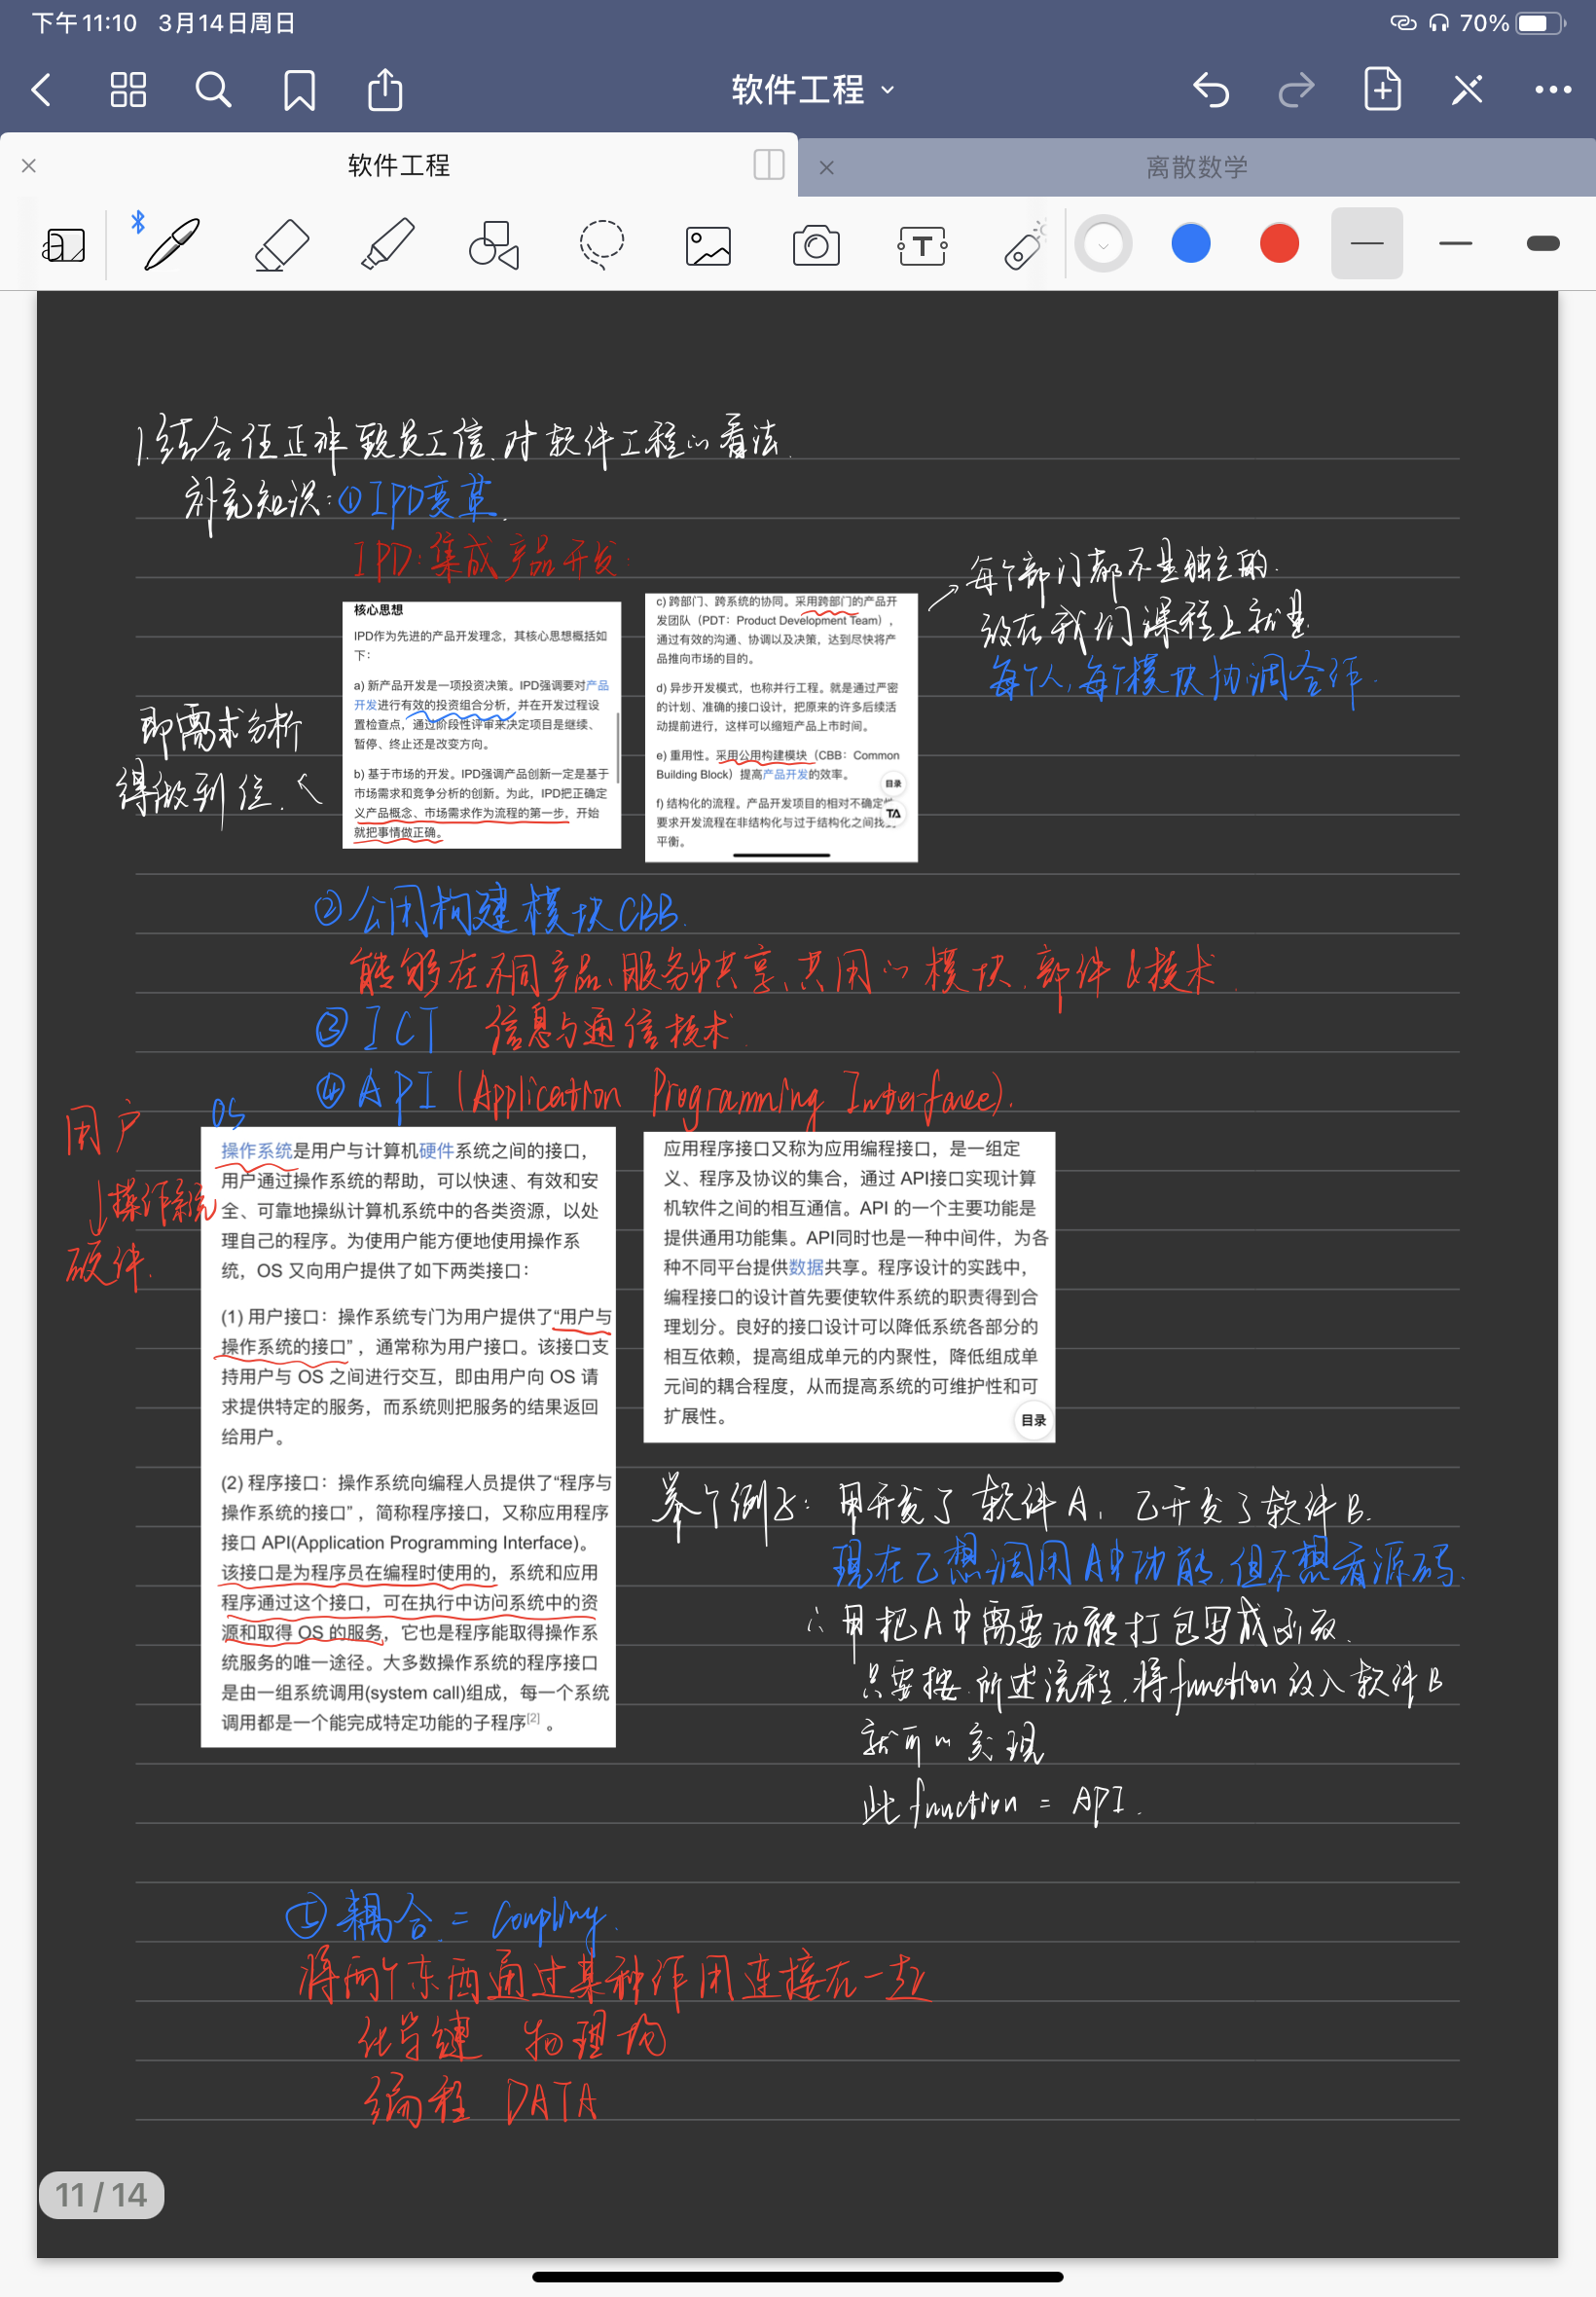 下午11:10 3月14日周日
70%
软件工程
软件工程
离散数学
1.结合任正非致员工信.对软件工程的看法.
补充知识:①IPD变革.
IPD:集成产品开发.
→每个部门都不是独立的.
放在我们课程上就是
每个人,每个模块协调合作.
即需求分析
得做到位.
核心思想
IPD作为先进的产品开发理念，其核心思想概括如
下：
a) 新产品开发是一项投资决策。IPD强调要对产品
开发进行有效的投资组合分析，并在开发过程设
置检查点，通过阶段性评审来决定项目是继续、
暂停、终止还是改变方向。
b) 基于市场的开发。IPD强调产品创新一定是基于
市场需求和竞争分析的创新。为此，IPD把正确定
义产品概念、市场需求作为流程的第一步，开始
就把事情做正确。
c) 跨部门、跨系统的协同。采用跨部门的产品开
发团队（PDT：Product Development Team），
通过有效的沟通、协调以及决策，达到尽快将产
品推向市场的目的。
d) 异步开发模式，也称并行工程。就是通过严密
的计划、准确的接口设计，把原来的许多后续活
动提前进行，这样可以缩短产品上市时间。
e) 重用性。采用公用构建模块（CBB：Common
Building Block）提高产品开发的效率。
目录
f) 结构化的流程。产品开发项目的相对不确定性
要求开发流程在非结构化与过于结构化之间找到
平衡。
②公用构建模块CBB.
能够在不同产品、服务中共享、共用的模块.部件&技术.
③ICT 信息与通信技术.
④API (Application Programming Interface).
用户
↓操作系统
硬件.
OS
操作系统是用户与计算机硬件系统之间的接口，
用户通过操作系统的帮助，可以快速、有效和安
全、可靠地操纵计算机系统中的各类资源，以处
理自己的程序。为使用户能方便地使用操作系
统，OS 又向用户提供了如下两类接口：
(1) 用户接口：操作系统专门为用户提供了“用户与
操作系统的接口”，通常称为用户接口。该接口支
持用户与 OS 之间进行交互，即由用户向 OS 请
求提供特定的服务，而系统则把服务的结果返回
给用户。
(2) 程序接口：操作系统向编程人员提供了“程序与
操作系统的接口”，简称程序接口，又称应用程序
接口 API(Application Programming Interface)。
该接口是为程序员在编程时使用的，系统和应用
程序通过这个接口，可在执行中访问系统中的资
源和取得 OS 的服务，它也是程序能取得操作系
统服务的唯一途径。大多数操作系统的程序接口
是由一组系统调用(system call)组成，每一个系统
调用都是一个能完成特定功能的子程序[2] 。
应用程序接口又称为应用编程接口，是一组定
义、程序及协议的集合，通过 API接口实现计算
机软件之间的相互通信。API 的一个主要功能是
提供通用功能集。API同时也是一种中间件，为各
种不同平台提供数据共享。程序设计的实践中，
编程接口的设计首先要使软件系统的职责得到合
理划分。良好的接口设计可以降低系统各部分的
相互依赖，提高组成单元的内聚性，降低组成单
元间的耦合程度，从而提高系统的可维护性和可
扩展性。
目录
举个例子: 甲开发了软件A, 乙开发了软件B.
现在乙想调用A中功能,但不想看源码.
∴甲把A中需要功能打包写成函数.
只要按所述流程,将function放入软件B
就可以实现
此function = API.
⑤耦合 = Coupling.
将两个东西通过某种作用连接在一起
化学键 物理场
编程 DATA
11 / 14